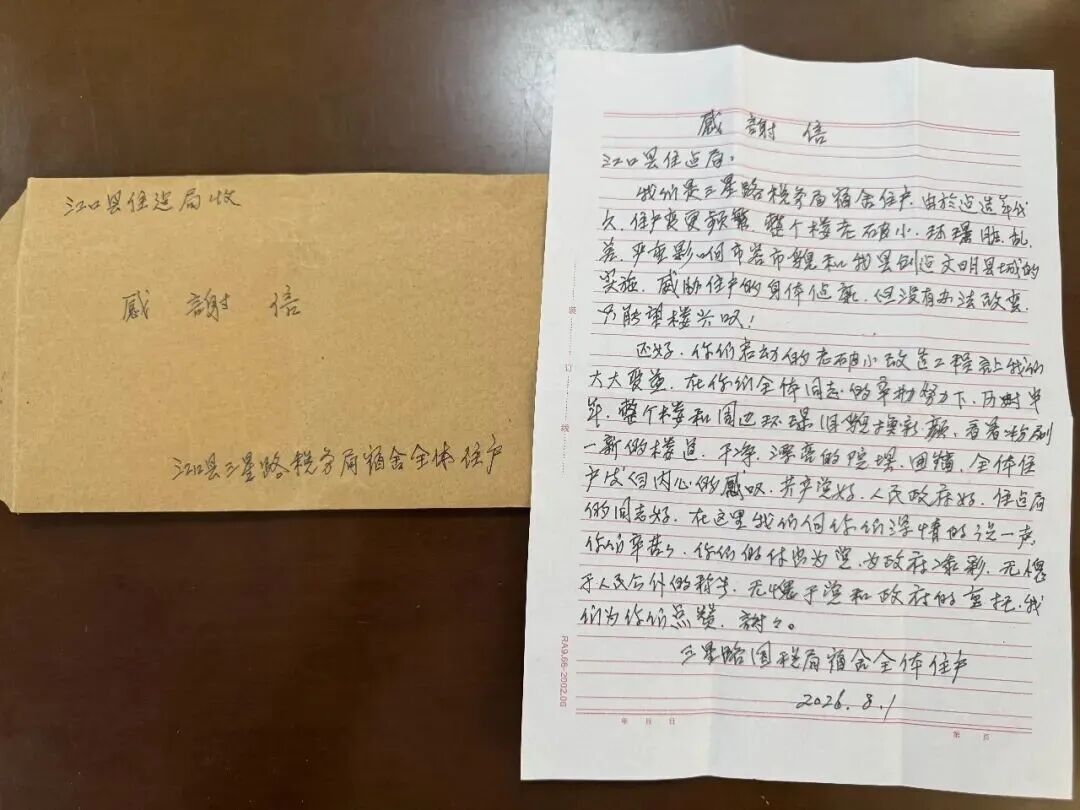 江口县住建局收
感謝信
江口县三星路税务局宿舍全体住户
感謝信
江口县住建局：
我们是三星路税务局宿舍住户，由於建造年代
久，住户变更频繁，整个楼老破小，环境脏、乱、
差，严重影响市容市貌和我县创建文明县城的
实施，威胁住户的身体健康，但没有办法改变，
只能望楼兴叹！
还好，你们启动的老破小改造工程让我们
大大受益，在你们全体同志的辛勤努力下，历时半
年，整个楼和周边环境旧貌换新颜，看着粉刷
一新的楼道，干净、漂亮的院坝、围墙，全体住
户发自内心的感叹，共产党好，人民政府好，住建局
的同志好，在这里我们向你们深情的说一声，
你们辛苦了，你们的付出为党、为政府添彩，无愧
于人民公仆的称号，无愧于党和政府的重托，我
们为你们点赞，謝々。
三星路国税局宿舍全体住户
2026.8.1
装
订
线
RA9.66-2002.06
年月日
第 页